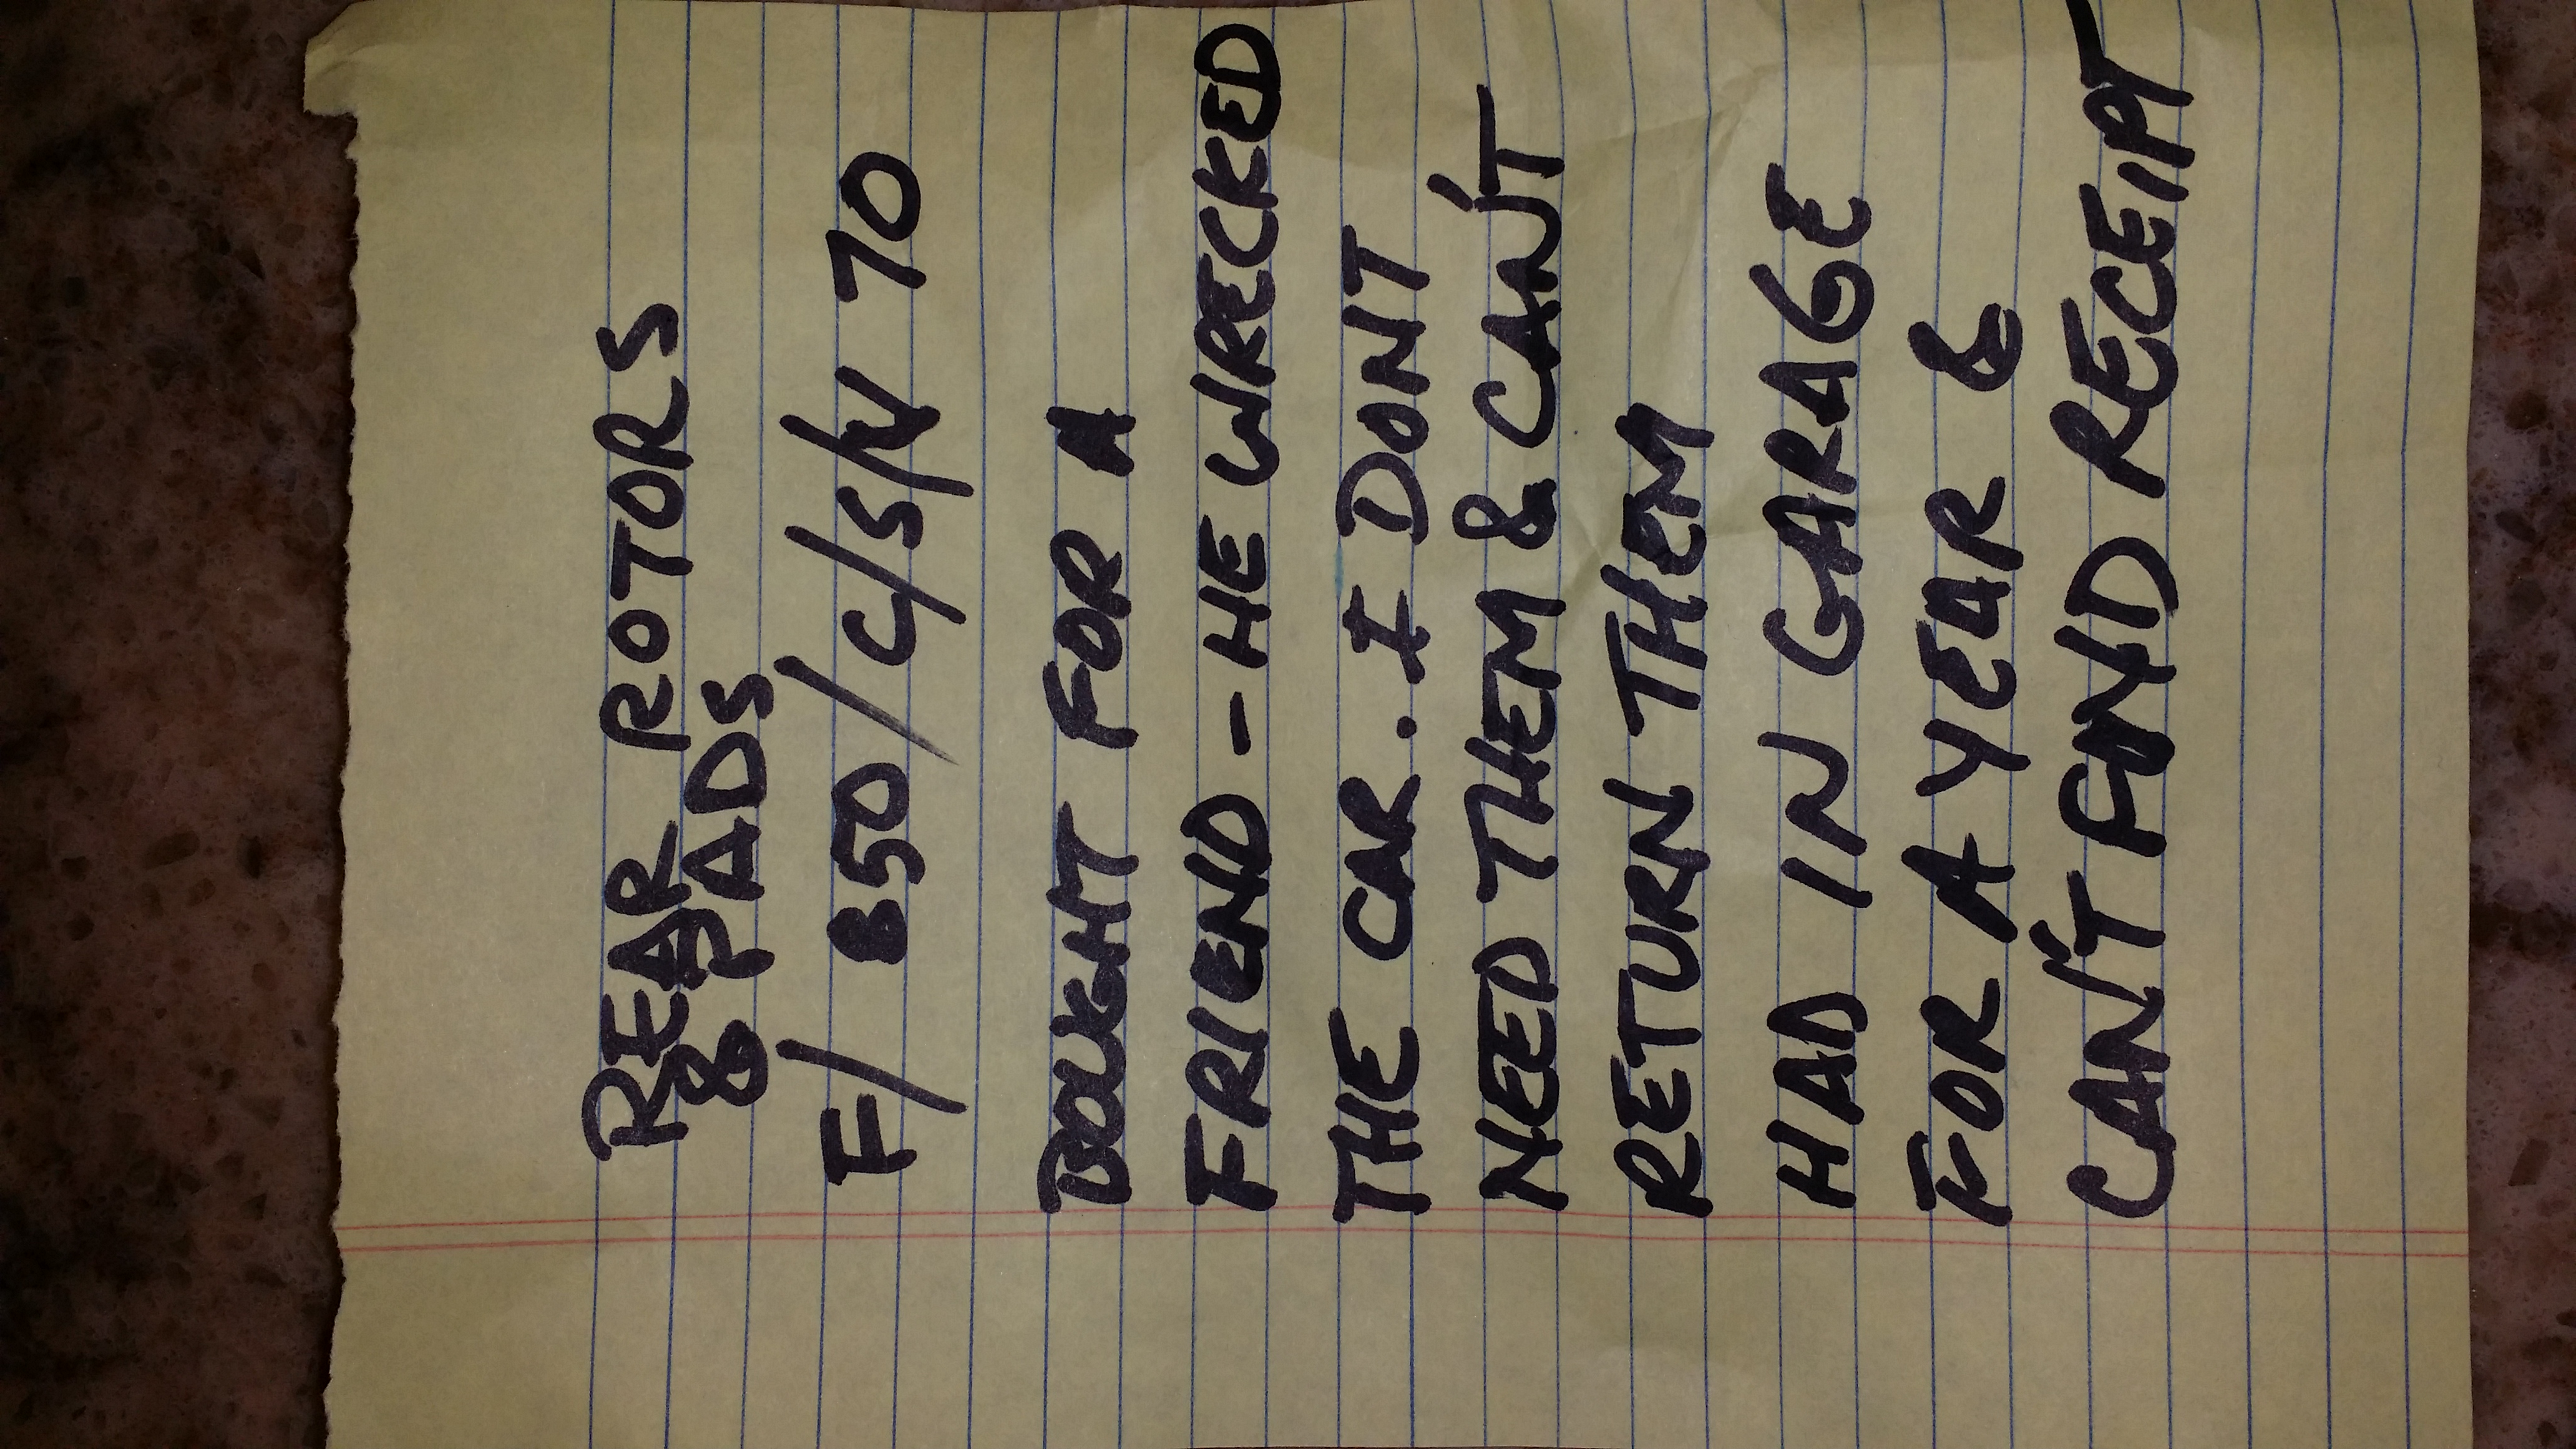 REAR ROTORS
& PADS
F/ 850/C/S/V 70
BOUGHT FOR A
FRIEND - HE WRECKED
THE CAR. I DONT
NEED THEM & CAN'T
RETURN THEM
HAD IN GARAGE
FOR A YEAR &
CAN'T FIND RECEIPT